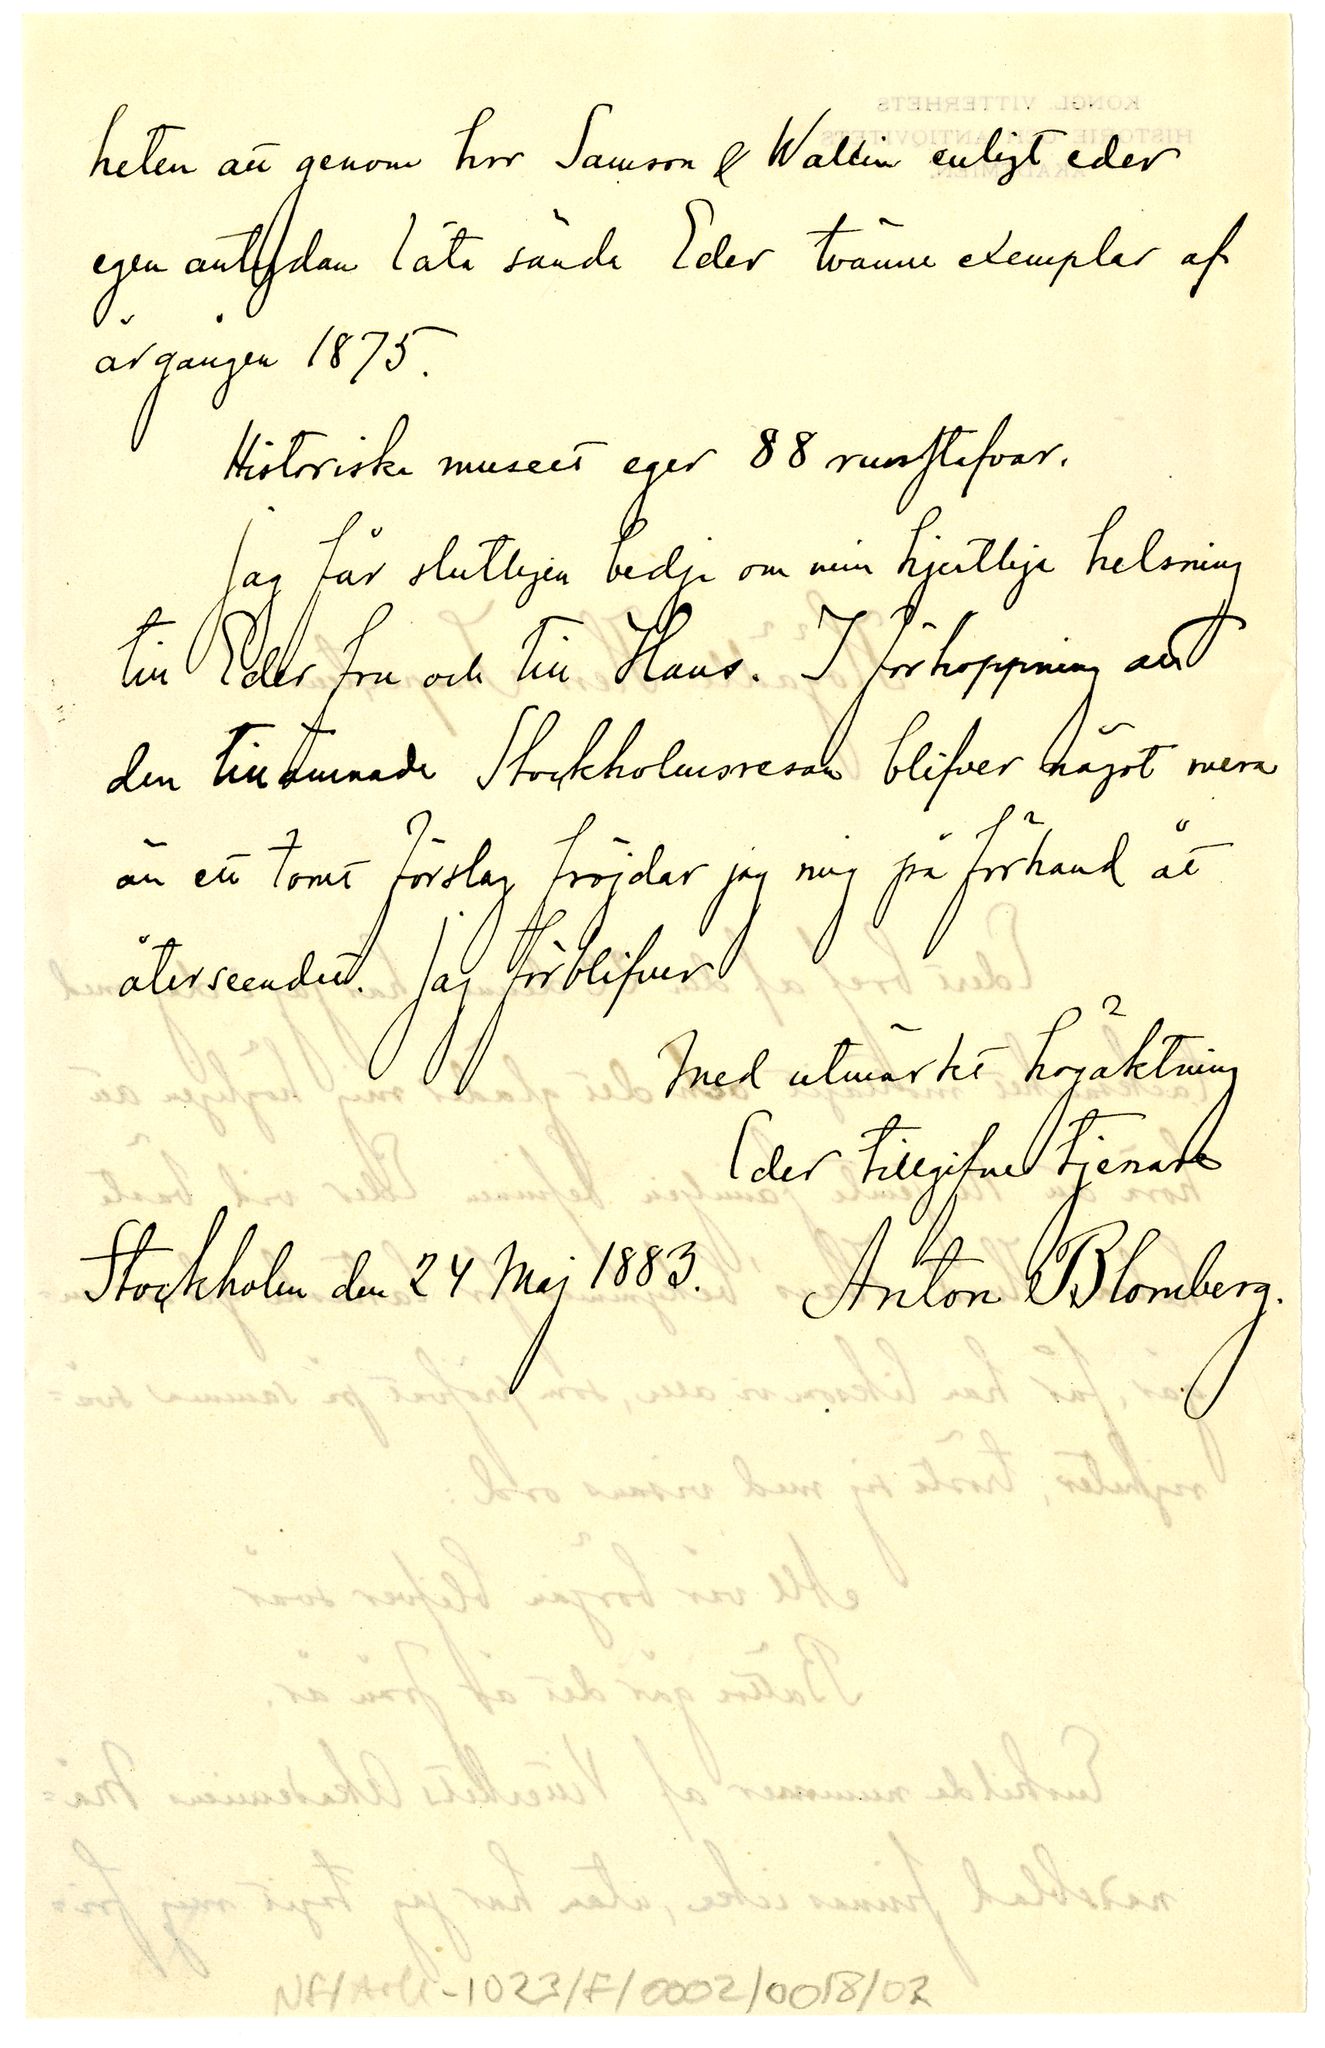 heten att genom hrr Samson & Wallin enligt eder
egen antydan låta sända Eder tvänne exemplar af
årgången 1875.
Historiska museet eger 88 runstafvar.
Jag får slutligen bedja om min hjertliga helsning
till Eder fru och till Hans. I förhoppning att
den tillämnade Stockholmsresan blifver något mera
än ett tomt förslag fröjdar jag mig på förhand åt
återseendet. Jag förblifver
Med utmärkt högaktning
Eder tillgifne tjenare
Stockholm den 24 Maj 1883. Anton Blomberg.
-1023/F/0002/0018/02